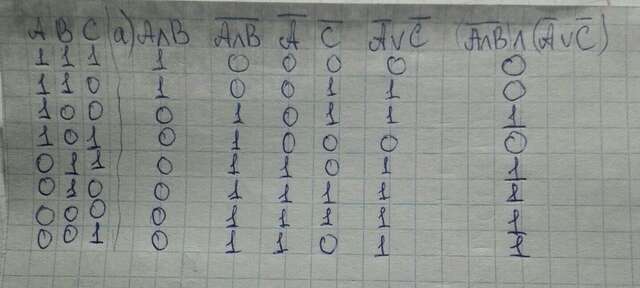 A B C a) A∧B A̅∧̅B̅ A̅ C̅ A̅∨C̅ (A̅∧̅B̅)∧(A̅∨C̅)
1 1 1 1 0 0 0 0 0
1 1 0 1 0 0 1 1 0
1 0 0 0 1 0 1 1 1
1 0 1 0 1 0 0 0 0
0 1 1 0 1 1 0 1 1
0 1 0 0 1 1 1 1 1
0 0 0 0 1 1 1 1 1
0 0 1 0 1 1 0 1 1